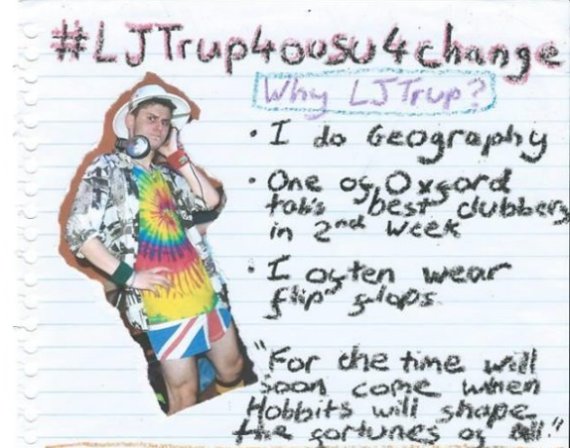 #LJTrup4ousu4change
Why LJTrup?
• I do Geography
• One of Oxford
tab's best clubbers
in 2nd Week
• I often wear
flip flops
"For the time will
soon come when
Hobbits will shape
the fortunes of all"